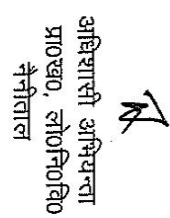 अधिशासी अभियन्ता
प्रा०ख०, लो०नि०वि०
नैनीताल